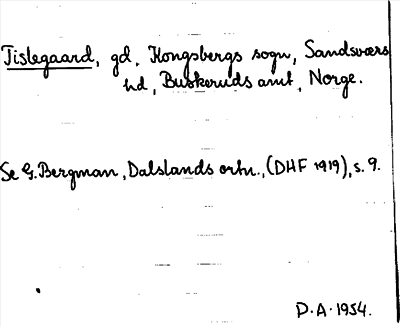 Tislegaard, gd, Kongsbergs sogn, Sandsværs
hd, Buskeruds amt, Norge.
Se G. Bergman, Dalslands ortn., (DHF 1919), s. 9.
D.A. 1954.